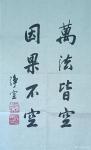 萬法皆空
因果不空
淨空